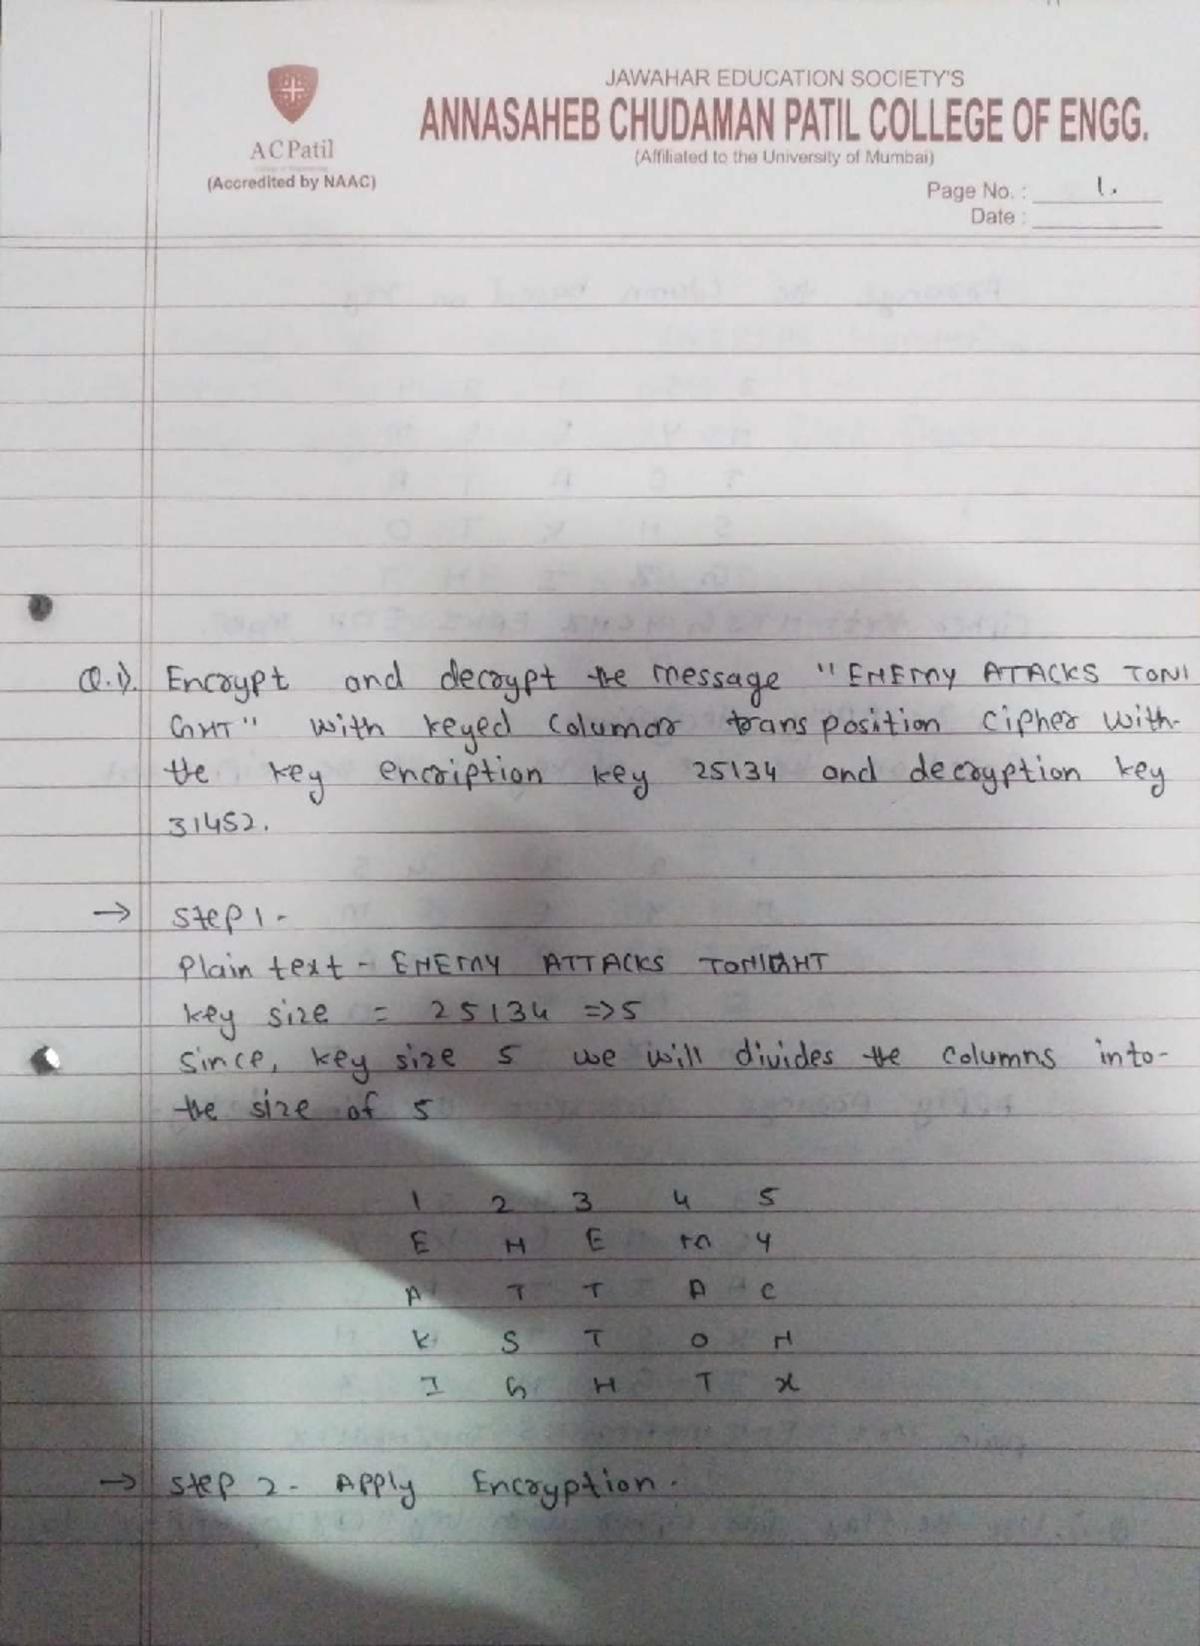 JAWAHAR EDUCATION SOCIETY'S
ANNASAHEB CHUDAMAN PATIL COLLEGE OF ENGG.
(Affiliated to the University of Mumbai)
A C Patil
(Accredited by NAAC)
Page No. : 1.
Date :
Q.1). Encrypt and decrypt the message "ENEMY ATACKS TONI
GHT" with keyed Columar transposition Cipher with-
the key encription key 25134 and decryption key
31452.
→ Step 1 -
Plain text - ENEMY ATTACKS TONIGHT
key size = 25134 => 5
Since, key size 5 we will divides the columns into-
the size of 5
1 2 3 4 5
E N E M Y
A T T A C
K S T O N
I G H T X
→ Step 2 - Apply Encryption.